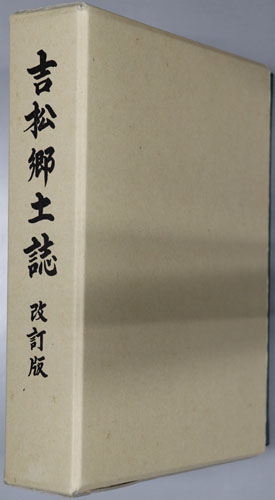 吉松郷土誌 改訂版